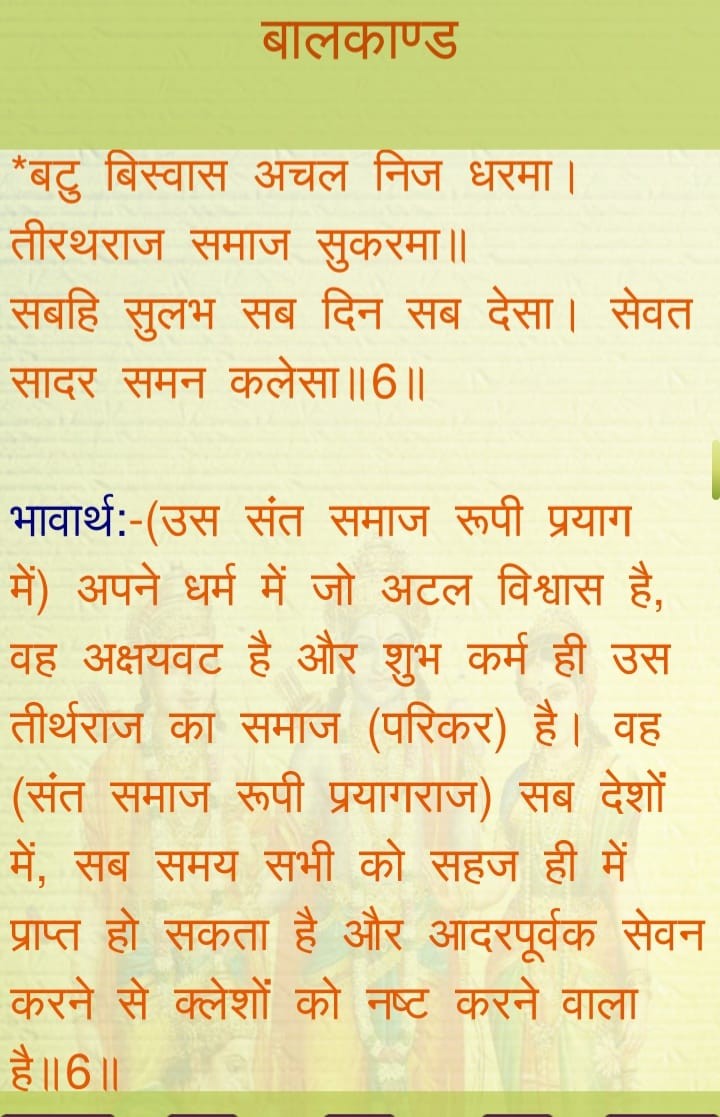 बालकाण्ड
*बटु बिस्वास अचल निज धरमा।
तीरथराज समाज सुकरमा॥
सबहि सुलभ सब दिन सब देसा। सेवत
सादर समन कलेसा॥6॥
भावार्थ:-(उस संत समाज रूपी प्रयाग
में) अपने धर्म में जो अटल विश्वास है,
वह अक्षयवट है और शुभ कर्म ही उस
तीर्थराज का समाज (परिकर) है। वह
(संत समाज रूपी प्रयागराज) सब देशों
में, सब समय सभी को सहज ही में
प्राप्त हो सकता है और आदरपूर्वक सेवन
करने से क्लेशों को नष्ट करने वाला
है॥6॥